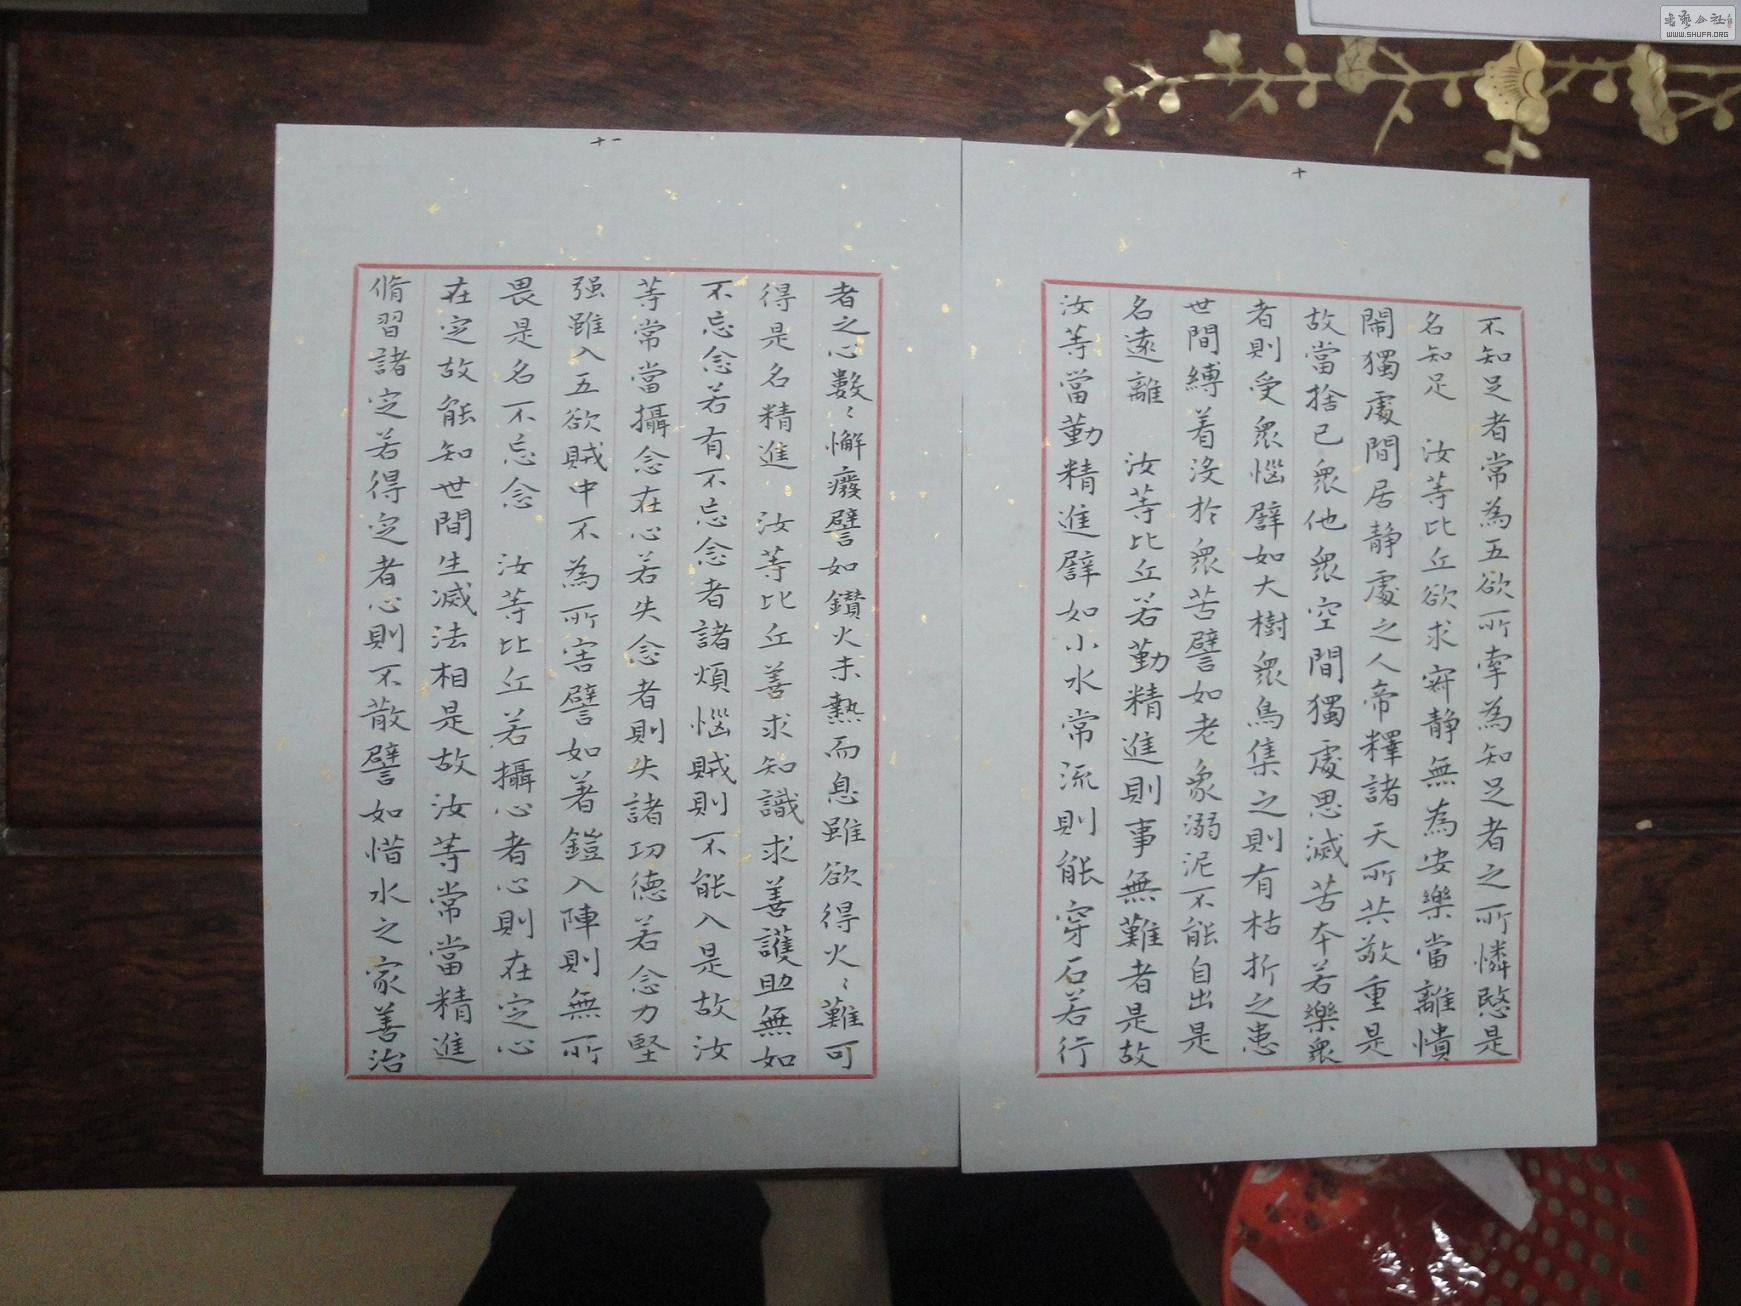 十
不知足者常為五欲所牽為知足者之所憐愍是
名知足　汝等比丘欲求寂静無為安樂當離憒
閙獨處閒居静處之人帝釋諸天所共敬重是
故當捨己衆他衆空閒獨處思滅苦本若樂衆
者則受衆惱譬如大樹衆鳥集之則有枯折之患
世間縛着没於衆苦譬如老象溺泥不能自出是
名遠離　汝等比丘若勤精進則事無難者是故
汝等當勤精進譬如小水常流則能穿石若行
十一
者之心數〻懈癈譬如鑽火未熱而息雖欲得火〻難可
得是名精進　汝等比丘善求知識求善護助無如
不忘念若有不忘念者諸煩惱賊則不能入是故汝
等常當攝念在心若失念者則失諸功德若念力堅
强雖入五欲賊中不為所害譬如著鎧入陣則無所
畏是名不忘念　汝等比丘若攝心者心則在定心
在定故能知世間生滅法相是故汝等常當精進
脩習諸定若得定者心則不散譬如惜水之家善治
书艺公社
WWW.SHUFA.ORG